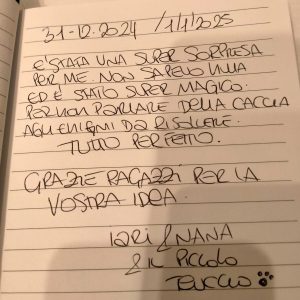 31-12-2024 / 1/1/2025
E' STATA UNA SUPER SORPRESA
PER ME. NON SAPEVO NULLA
ED E' STATO SUPER MAGICO.
PER NON PARLARE DELLA CACCIA
AGLI ENIGMI DA RISOLVERE.
TUTTO PERFETTO.
GRAZIE RAGAZZI PER LA
VOSTRA IDEA.
IARI & NANA
& IL PICCOLO